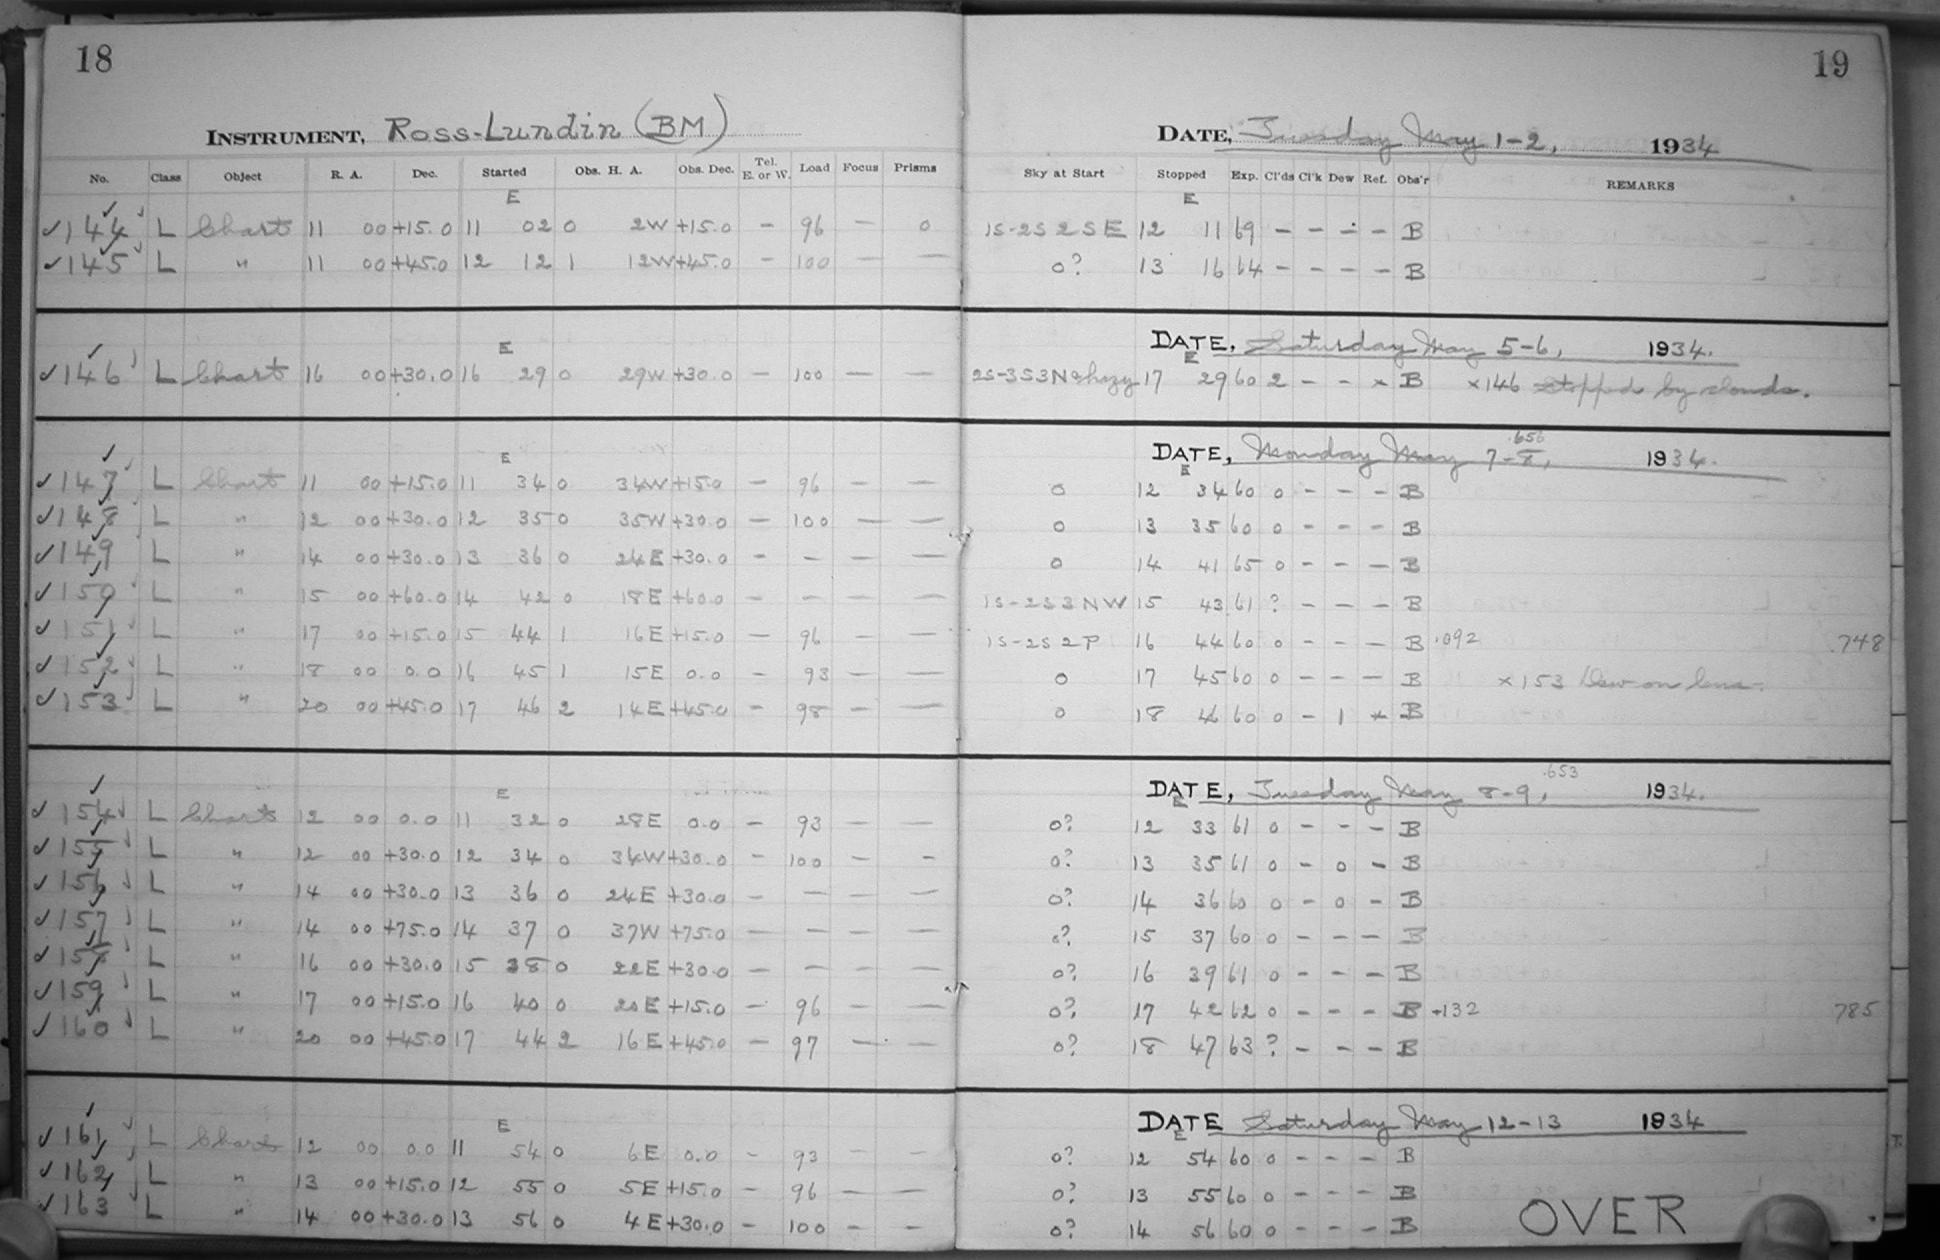 18
19
INSTRUMENT, Ross-Lundin (BM)
DATE, Tuesday May 1-2, 1934
No. Class Object R. A. Dec. Started Obs. H. A. Obs. Dec. Tel. E. or W. Load Focus Prisms Sky at Start Stopped Exp. Cl'ds Cl'k Dew Ref. Obs'r REMARKS
E E
✓144 L Chart 11 00 +15.0 11 02 0 2W +15.0 – 96 — 0 1S-2S 2SE 12 11 69 – – – – B
✓145 L " 11 00 +45.0 12 12 1 12W +45.0 – 100 — — 0? 13 16 64 – – – – B
DATE, Saturday May 5-6, 1934.
E E
✓146 L Chart 16 00 +30.0 16 29 0 29W +30.0 – 100 — — 2S-3S3N hazy 17 29 60 2 – – x B x146 Stopped by clouds.
DATE, Monday May 7-8, .656 1934.
E E
✓147 L Chart 11 00 +15.0 11 34 0 34W +15.0 – 96 — — 0 12 34 60 0 – – – B
✓148 L " 12 00 +30.0 12 35 0 35W +30.0 – 100 — — 0 13 35 60 0 – – – B
✓149 L " 14 00 +30.0 13 36 0 24E +30.0 – – — — 0 14 41 65 0 – – – B
✓150 L " 15 00 +60.0 14 42 0 18E +60.0 – – — — 1S-2S3NW 15 43 61 ? – – – B
✓151 L " 17 00 +15.0 15 44 1 16E +15.0 – 96 — — 1S-2S 2P 16 44 60 0 – – – B .092 .748
✓152 L " 18 00 0.0 16 45 1 15E 0.0 – 93 — — 0 17 45 60 0 – – – B x153 Dew on lens.
✓153 L " 20 00 +45.0 17 46 2 14E +45.0 – 98 — — 0 18 46 60 0 – 1 x B
DATE, Tuesday May 8-9, .653 1934.
E E
✓154 L Chart 12 00 0.0 11 32 0 28E 0.0 – 93 — — 0? 12 33 61 0 – – – B
✓155 L " 12 00 +30.0 12 34 0 34W +30.0 – 100 — – 0? 13 35 61 0 – 0 – B
✓156 L " 14 00 +30.0 13 36 0 24E +30.0 – — — — 0? 14 36 60 0 – 0 – B
✓157 L " 14 00 +75.0 14 37 0 37W +75.0 — — — — 0? 15 37 60 0 – – – B
✓158 L " 16 00 +30.0 15 38 0 22E +30.0 – – — — 0? 16 39 61 0 – – – B
✓159 L " 17 00 +15.0 16 40 0 20E +15.0 – 96 — — 0? 17 42 62 0 – – – B +132 785
✓160 L " 20 00 +45.0 17 44 2 16E +45.0 – 97 — — 0? 18 47 63 ? – – – B
DATE Saturday May 12-13 1934
E E
✓161 L Chart 12 00 0.0 11 54 0 6E 0.0 – 93 – – 0? 12 54 60 0 – – – B
✓162 L " 13 00 +15.0 12 55 0 5E +15.0 – 96 — — 0? 13 55 60 0 – – – B
✓163 L " 14 00 +30.0 13 56 0 4E +30.0 – 100 — – 0? 14 56 60 0 – – – B
OVER